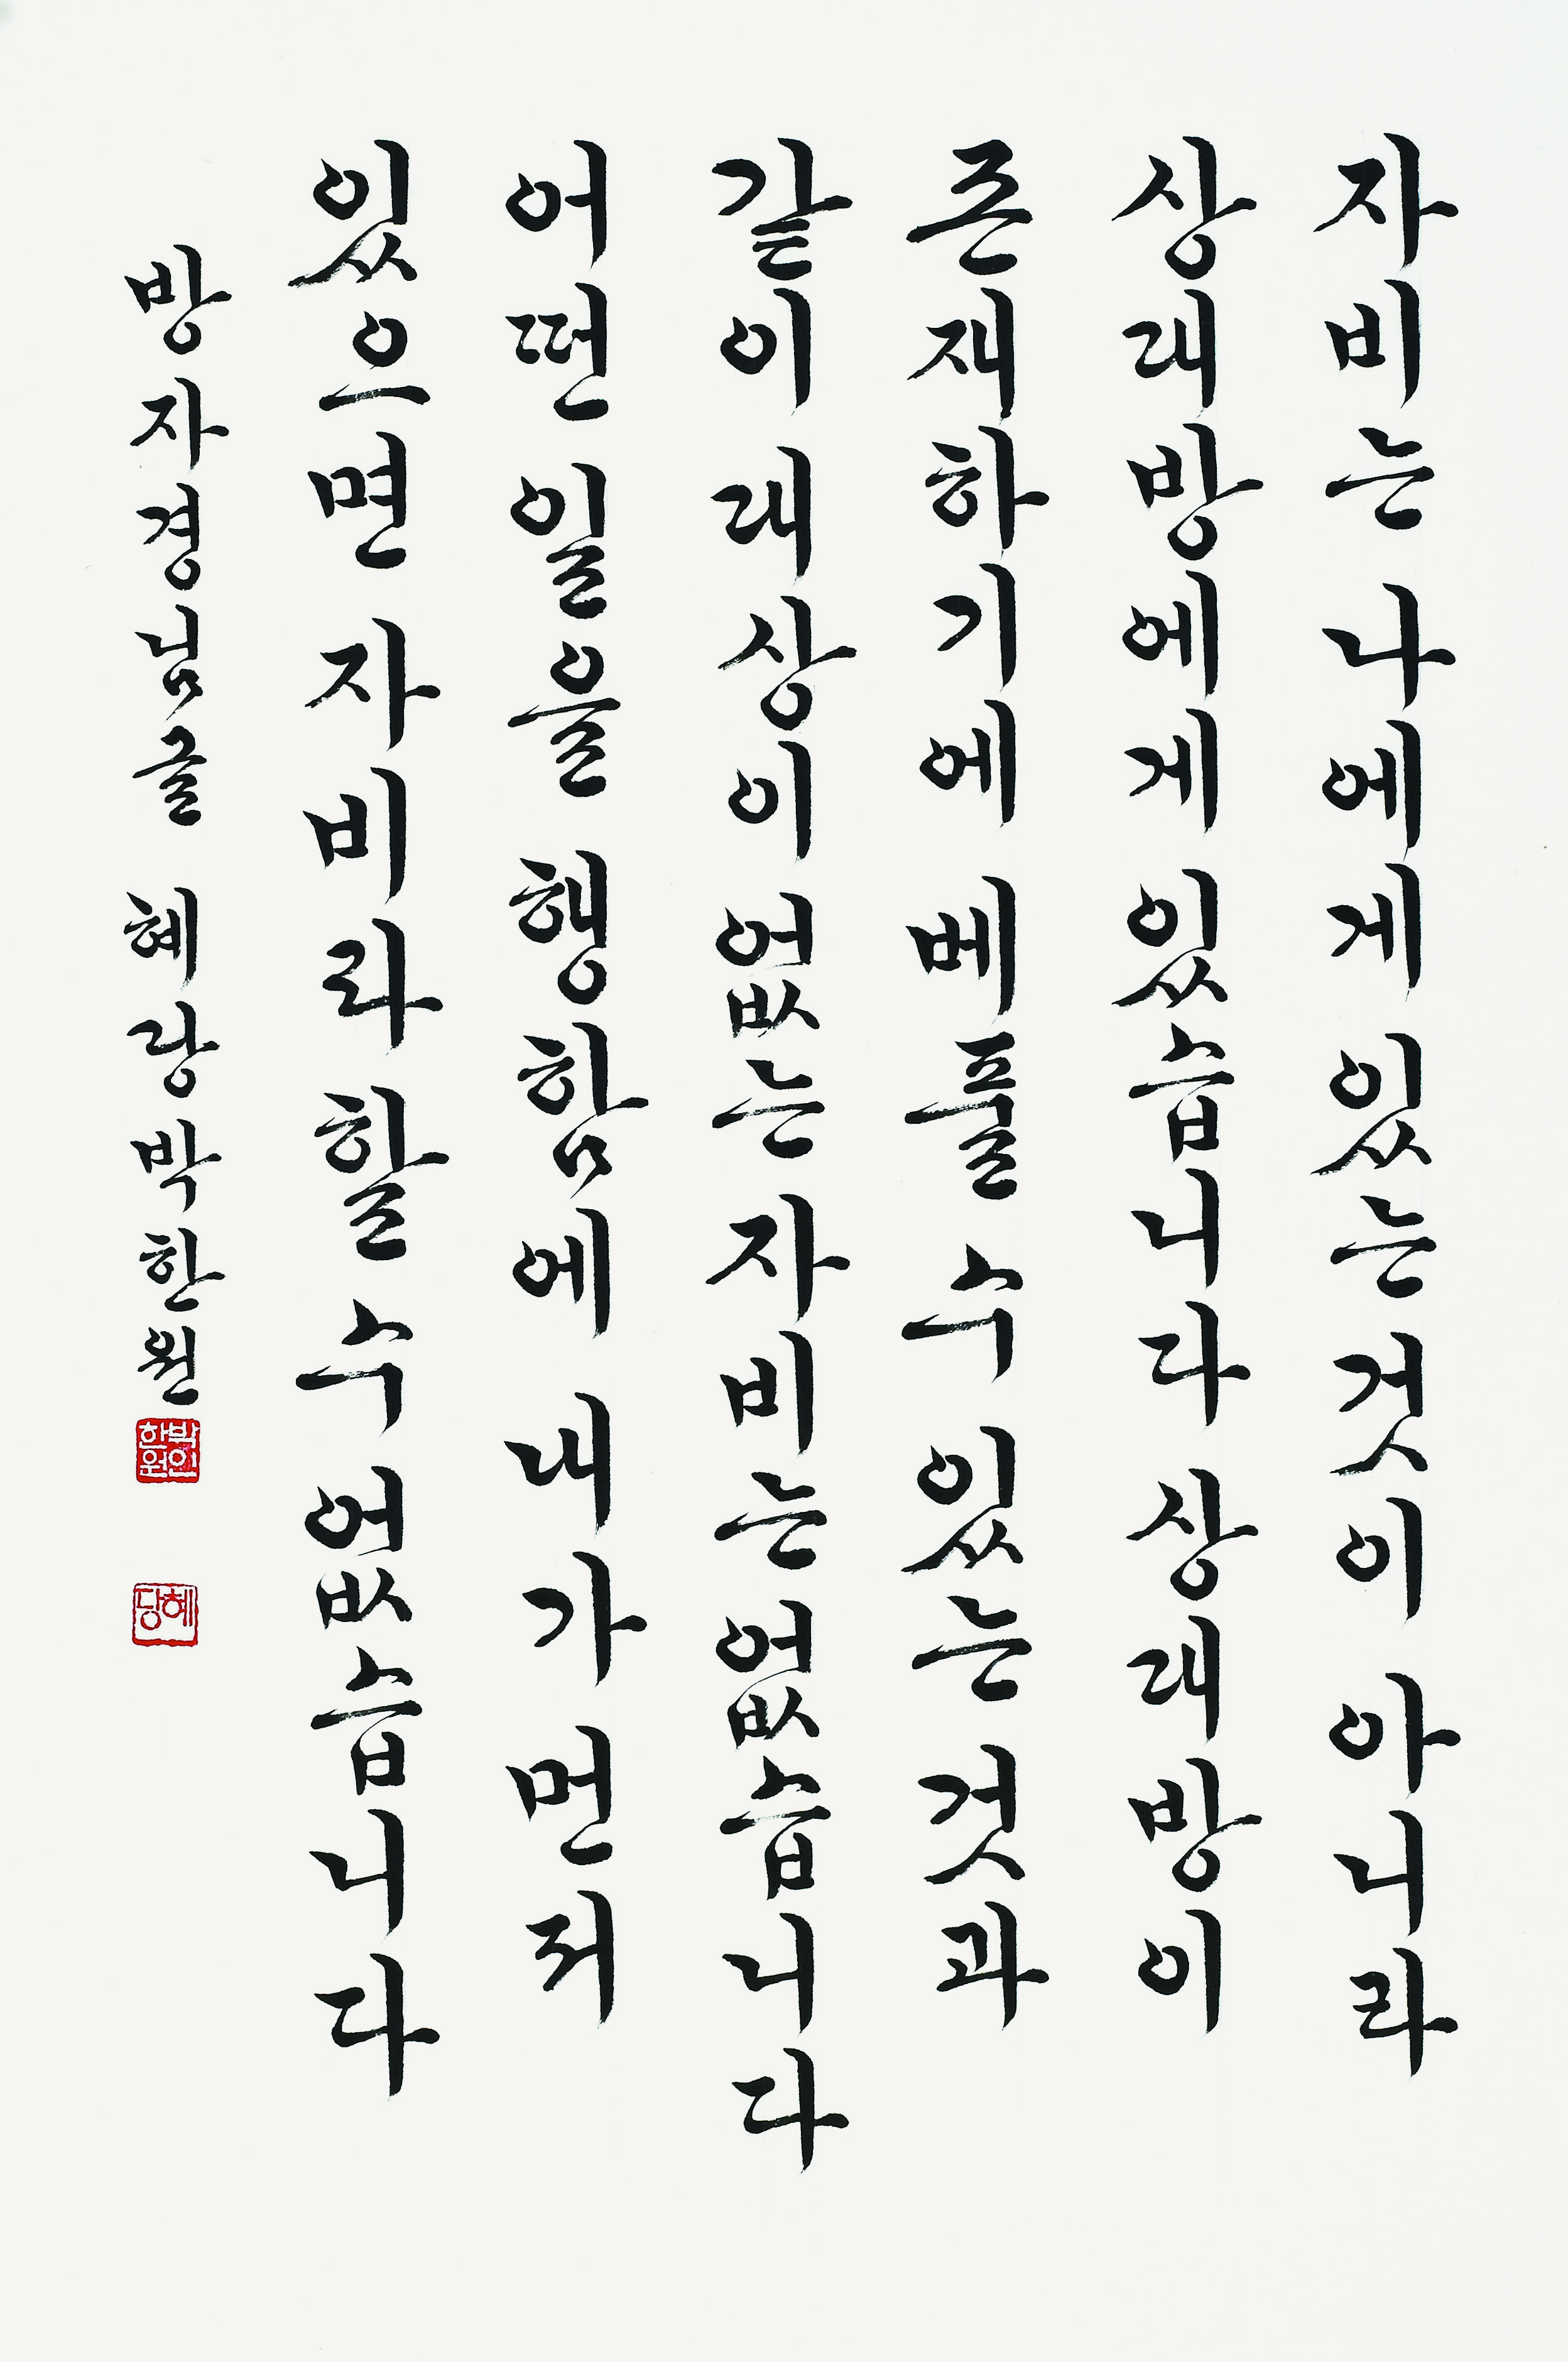 자비는 나에게 있는 것이 아니라
상대방에게 있습니다 상대방이
존재하기에 베풀 수 있는 것과
같이 대상이 없는 자비는 없습니다
어떤 일을 행함에 내가 먼저
있으면 자비라 할 수 없습니다
방자경님글 혜당 박한원
박인한원
혜당